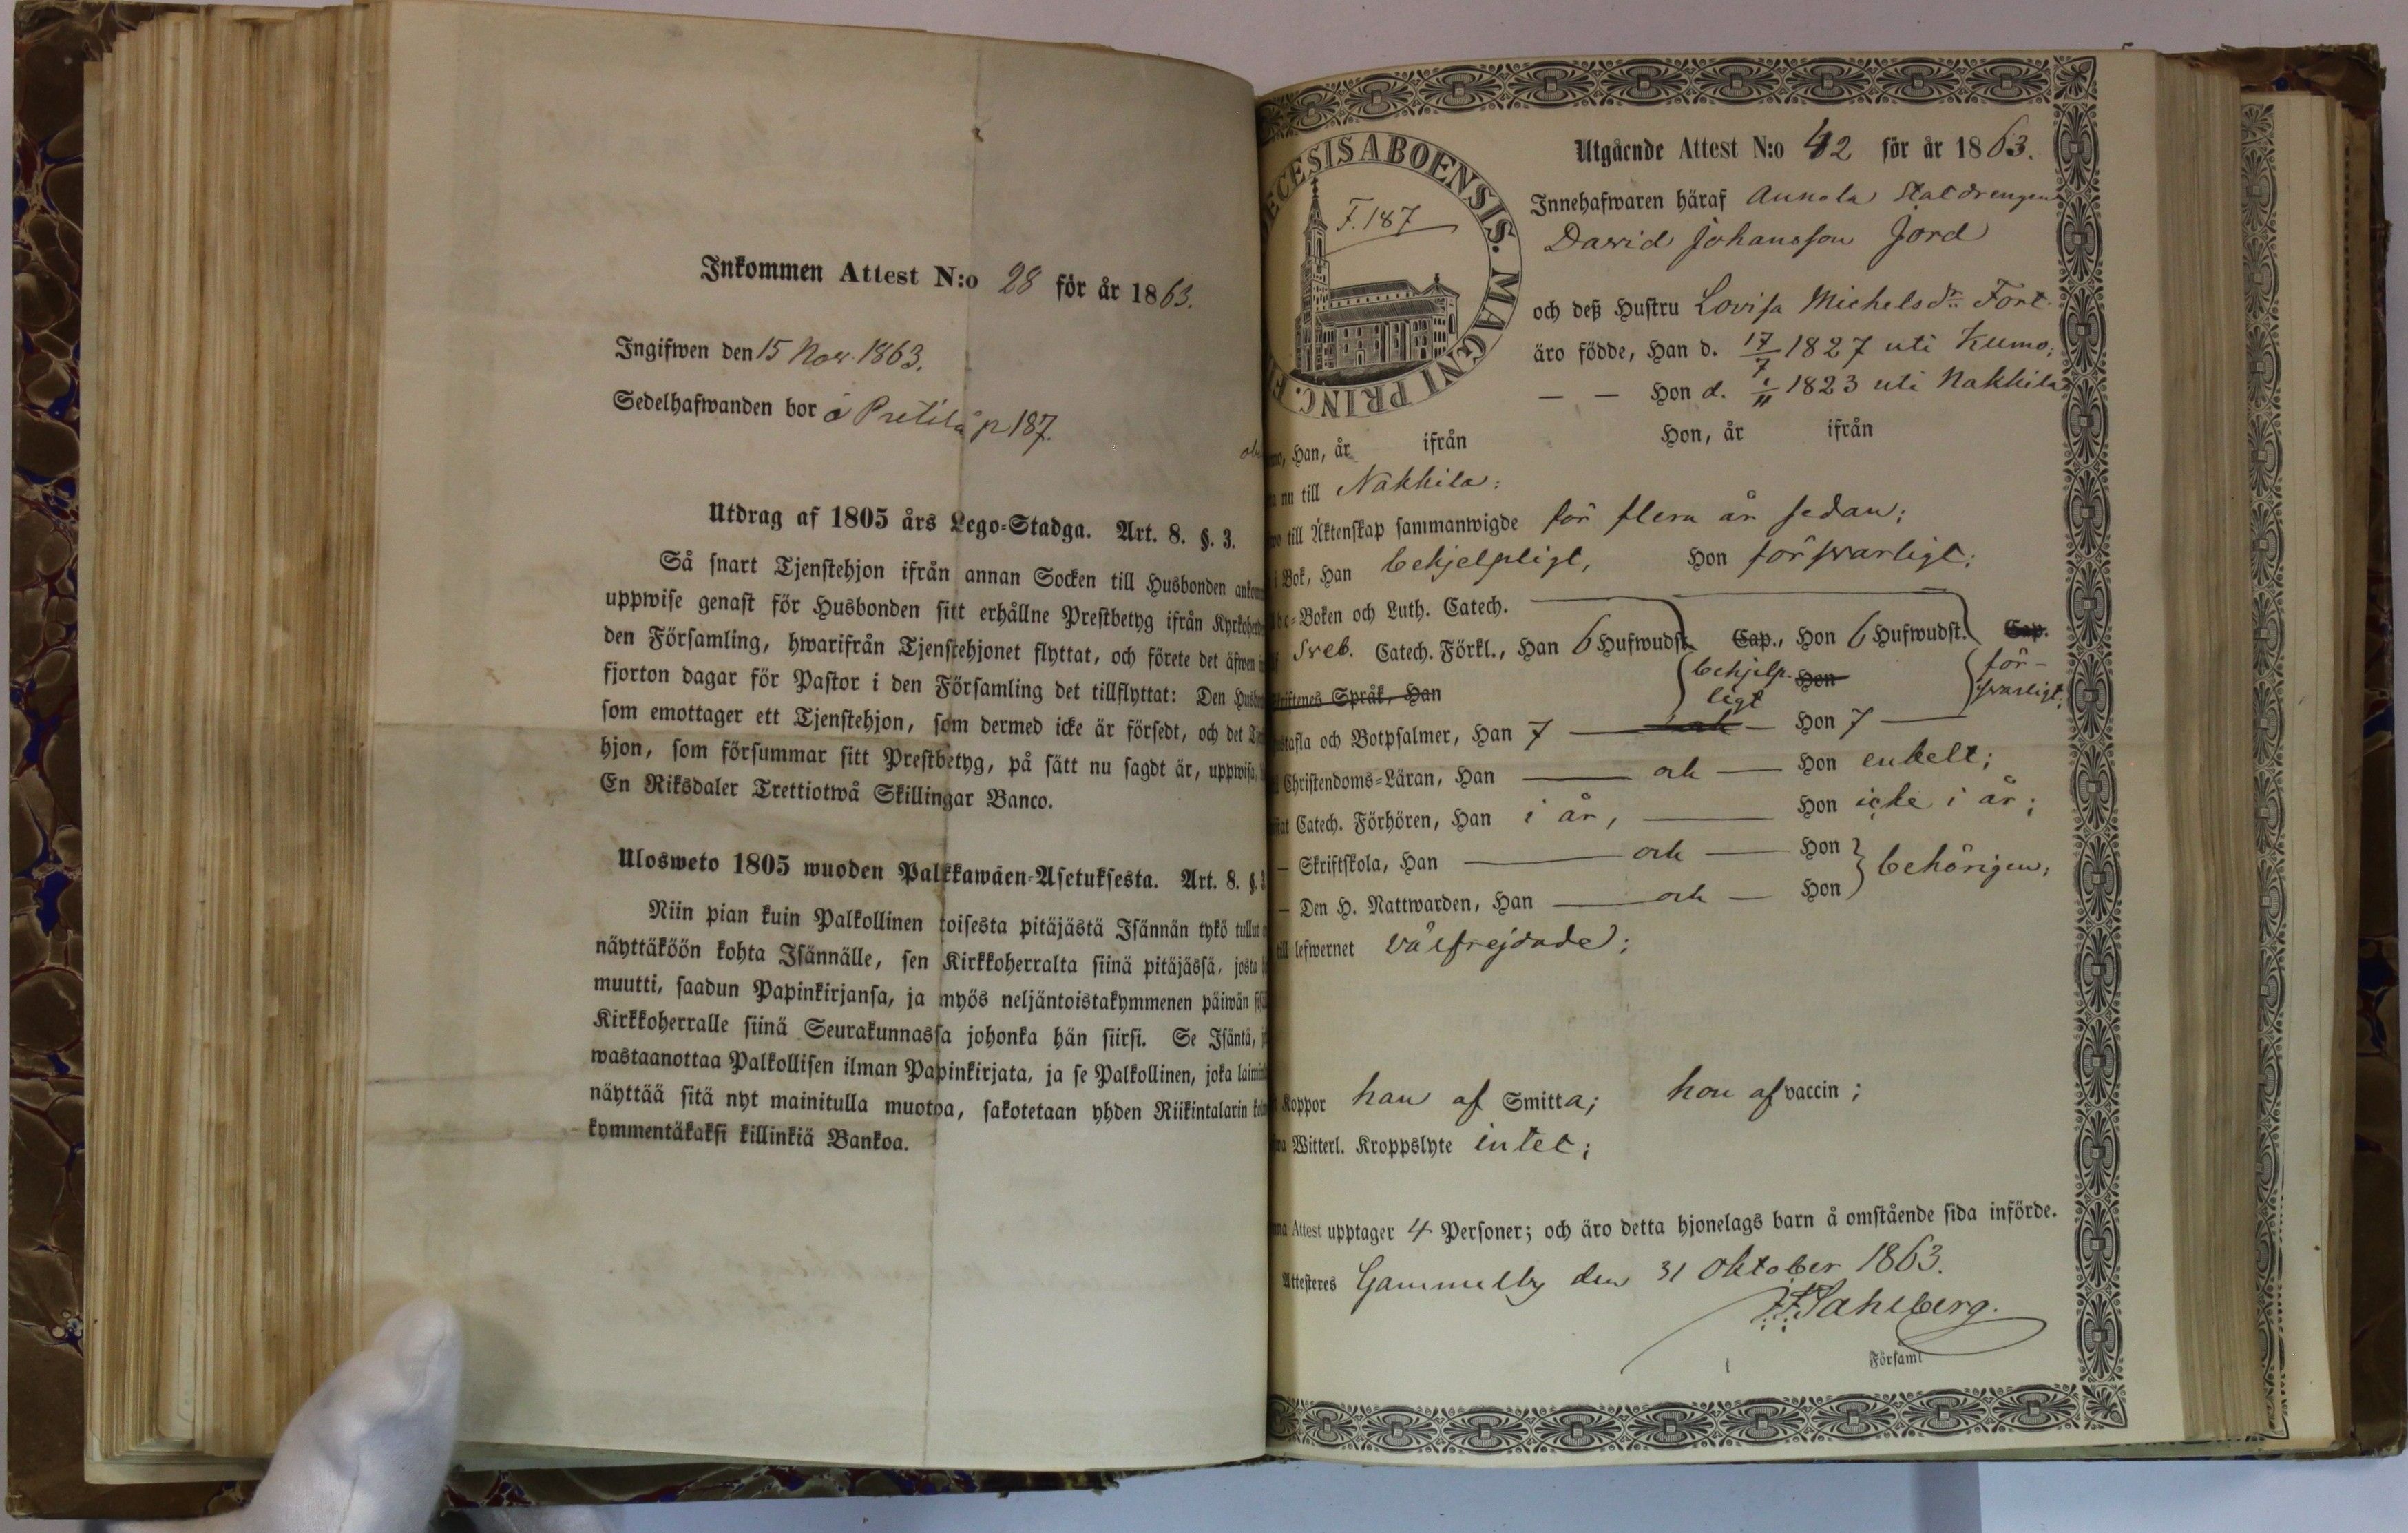 Inkommen Attest N:o 28 för år 1863.
Ingifwen den 15 Nov. 1863.
Sedelhafwanden bor å Pretilä p 187.
Utdrag af 1805 års Lego-Stadga. Art. 8. §. 3.
Så snart Tjenstehjon ifrån annan Socken till Husbonden
uppwise genast för Husbonden sitt erhållne Prestbetyg ifrån
den Församling, hwarifrån Tjenstehjonet flyttat, och förete det äfwen
fjorton dagar för Pastor i den Församling det tillflyttat: Den
som emottager ett Tjenstehjon, som dermed icke är försedt, och det
hjon, som försummar sitt Prestbetyg, på sätt nu sagdt är, uppwisa,
En Riksdaler Trettiotwå Skillingar Banco.
Ulosweto 1805 wuoden Palkkawäen-Asetuksesta. Art. 8. §.
Niin pian kuin Palkollinen toisesta pitäjästä Isännän tykö tullut
näyttäköön kohta Isännälle, sen Kirkkoherralta siinä pitäjässä, josta
muutti, saadun Papinkirjansa, ja myös neljäntoistakymmenen päiwän
Kirkkoherralle siinä Seurakunnassa johonka hän siirsi. Se Isäntä,
wastaanottaa Palkollisen ilman Papinkirjata, ja se Palkollinen, joka
näyttää sitä nyt mainitulla muotoa, sakotetaan yhden Riikintalarin
kymmentäkaksi killinkiä Bankoa.
ECESIS ABOENSIS. MAGNI PRINC.
F. 187
Utgående Attest N:o 42 för år 1863.
Innehafwaren häraf Annola Statdrengen
David Johansson Jord
och deß Hustru Lovisa Michelsdr. Fort.
äro födde, Han d. 17/7 1827 uti Kumo;
— — Hon d. 1/11 1823 uti Nakkila
Han, år ifrån Hon, år ifrån
nu till Nakkila:
till Äktenskap sammanwigde för flera år sedan;
i Bok, Han behjelpligt, Hon försvarligt;
Abc-Boken och Luth. Catech.
Sveb. Catech. Förkl., Han 6 Hufwudst. Cap., Hon 6 Hufwudst. Cap.
Skriftenes Språk, Han behjelpligt Hon försvarligt;
Hustafla och Botpsalmer, Han 7 — och — Hon 7 —
Christendoms-Läran, Han — och — Hon enkelt;
Catech. Förhören, Han i år, — Hon icke i år;
— Skriftskola, Han — och — Hon
— Den H. Nattwarden, Han — och — Hon } behörigen;
till lefwernet välfrejdade;
Koppor han af Smitta; hon af vaccin;
Witterl. Kroppslyte intet;
Attest upptager 4 Personer; och äro detta hjonelags barn å omstående sida införde.
Attesteres Gammelby den 31 Oktober 1863.
Sahlberg.
Församl